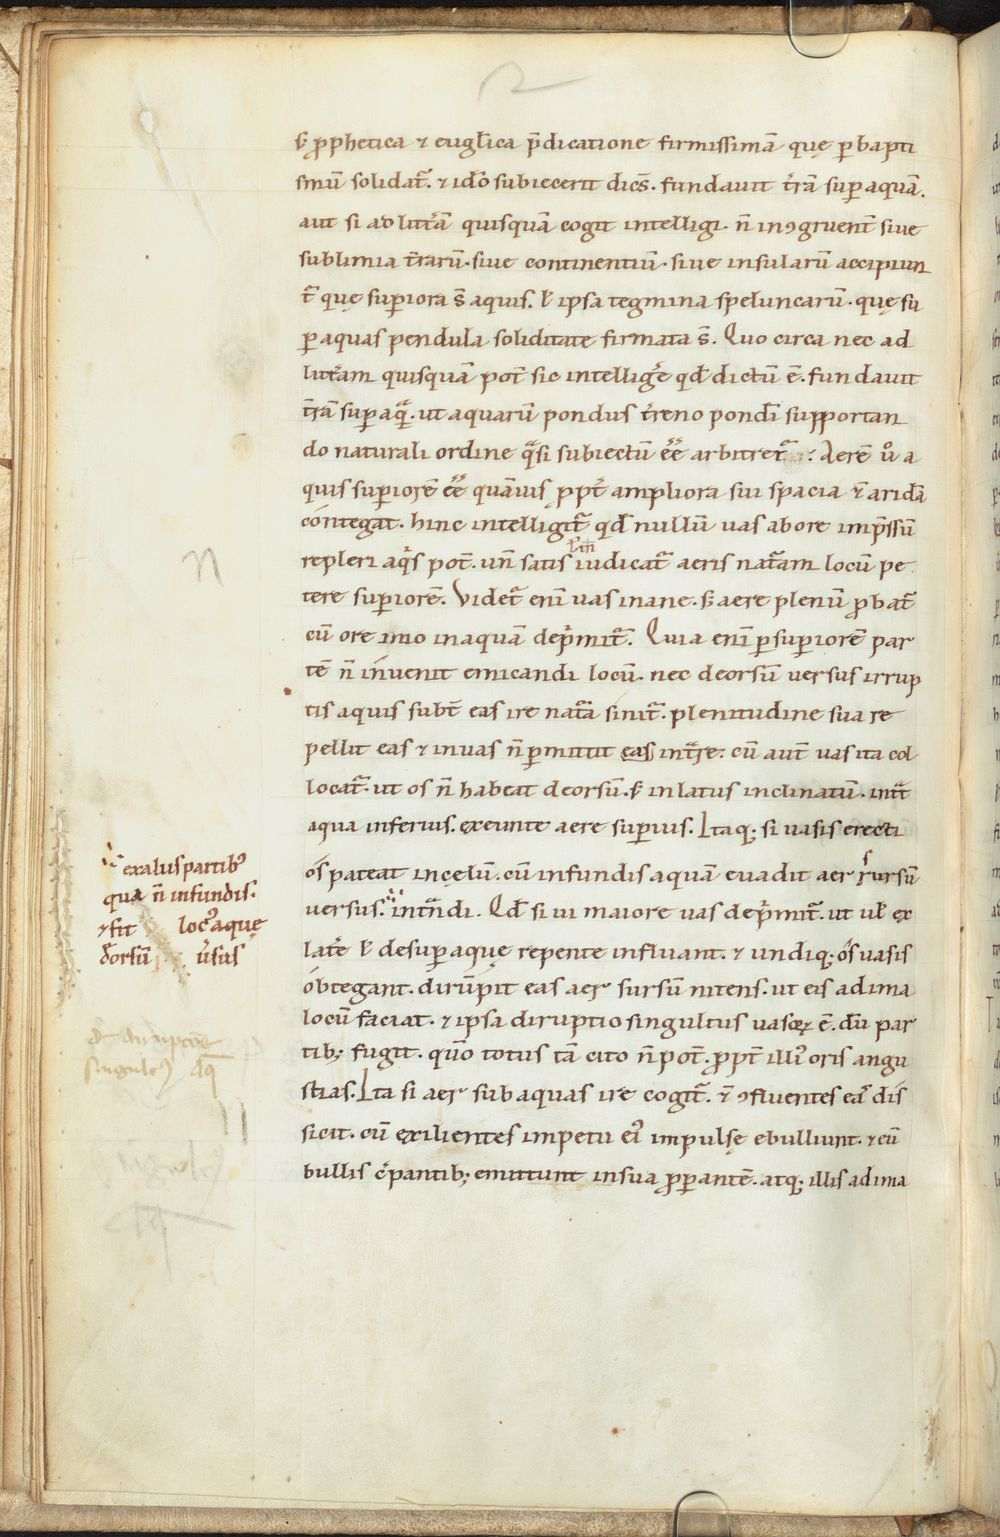 ꝭ ꝓphetica ⁊ euglica p̄dicatione firmissimā quę ꝑ bapti
smū solidat᷑. ⁊ ido subiecerit dicēs. fundauit t̄rā suꝑ aquā.
aut si ad litt̄ā quisquā cogit intelligi. n̄ inꝯgruent̄ siue
sublimia t̄rarū. siue continentiū. siue insularū accipiun
t᷑ quę suꝑiora s̄ aquis. ł ipsa tegmina speluncarū. quę su
ꝑ aquas pendula soliditate firmata s̄. Quo circa nec ad
litt̄am quisquā pot̄ sic intellige᷑ qđ dictū ē. fundauit
t̄rā suꝑ aqͣ. ut aquarū pondus t̄reno pondi supportan
do naturali ordine qͣsi subiectū ēē arbitret᷑. Aerē uͦ a
quis suꝑiorē ēē quāuis ꝓpt̄ ampliora sui spacia ⁊ aridā
contegat. hinc intelligit᷑ qđ nullū uas ab ore imp̄ssū
repleri aqͥs pot̄. un̄ satis iudicat᷑ aeris nat᷑am locū pe
tere suꝑiorē. Videt᷑ enī uas inane. ꝭ aere plenū ꝓbat᷑
cū ore imo in aquā dep̄mit᷑. Quia enī ꝑ suꝑiorē par
tē n̄ inuenit emicandi locū. nec deorsū uersus irrup
tis aquis subt̄ eas ire nat᷑a sinit᷑. plenitudine sua re
pellit eas ⁊ in uas n̄ ꝑmittit eas intͣre. cū aut̄ uas ita col
locat᷑. ut os n̄ habeat deorsū. ꝭ in latus inclinatū. intͣt
aqua inferius. exeunte aere suꝑius. Itaqꝫ si uasis erecti
os pateat in cęlū. cū infundis aquā euadit aer sursū
uersus. intͣndi. Qđ si ui maiore uas dep̄mit᷑. ut uł ex
late᷑ ł desuꝑ aquę repente influant. ⁊ undiqꝫ os uasis
obtegant. dirūpit eas aer sursū nitens. ut eis ad ima
locū faciat. ⁊ ipsa diruptio singultus uasoꝝ ē. dū par
tibꝫ fugit. qūo totus tā cito n̄ pot̄. ꝓpt̄ illiꝰ oris angu
stias. Ita si aer sub aquas ire cogit᷑. ⁊ ꝯfluentes eaſ dis
sicit. cū exilientes impetu eiꝰ impulsę ebulliunt. ⁊ cū
bullis c̄pantibꝫ emittunt in sua ꝓꝑantē. atqꝫ illis ad ima
ex aliis partibꝰ
qua n̄ infundis.
⁊ fit locꝰ aquę
đorsū ūsus